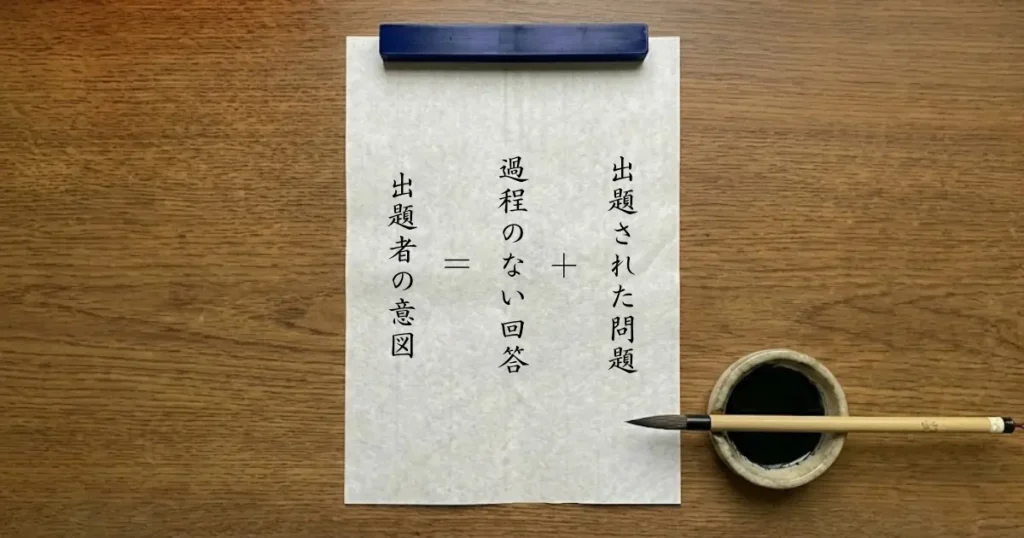 出題された問題
+
過程のない回答
=
出題者の意図